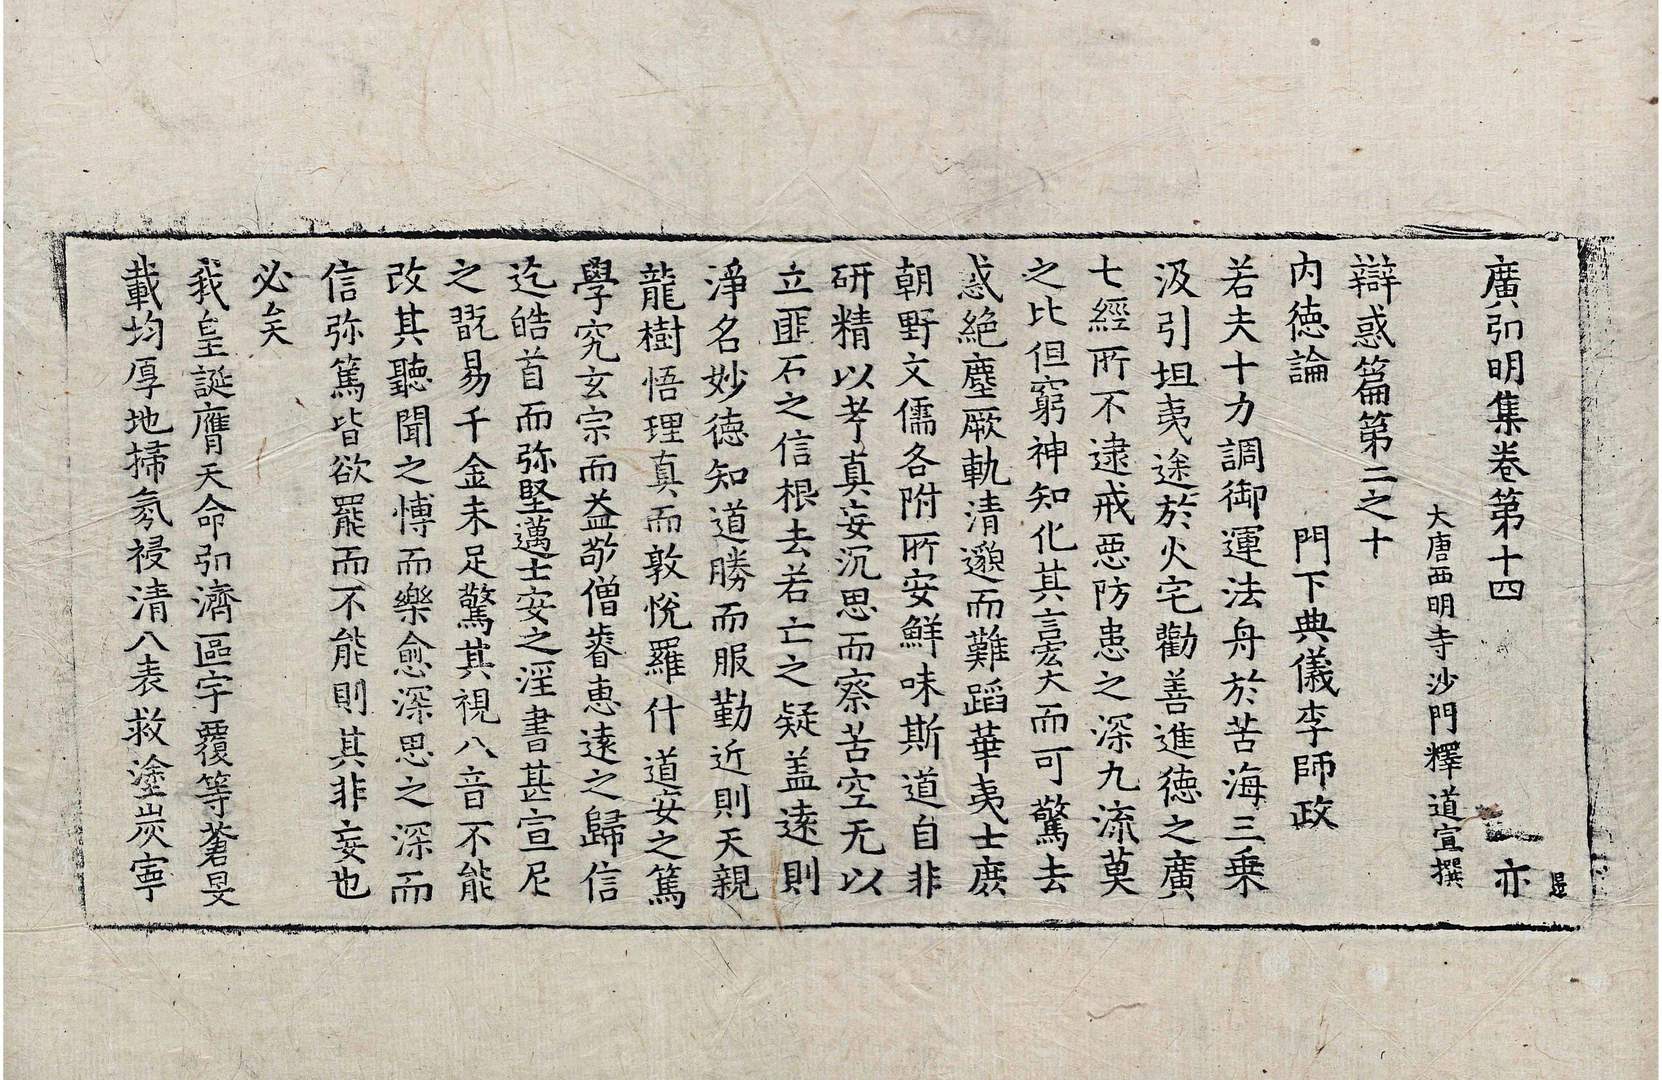 廣弘明集卷第十四 亦
大唐西明寺沙門釋道宣撰
辯惑篇第二之十
内德論 門下典儀李師政
若夫十力調御運法舟於苦海三乗
汲引坦夷途於火宅勸善進德之廣
七經所不逮戒惡防患之深九流莫
之比但窮神知化其言宏大而可驚去
惑絶塵厥軌清邈而難蹈華夷士庶
朝野文儒各附所安鮮味斯道自非
研精以考真妄沉思而察苦空无以
立匪石之信根去若亡之疑盖遠則
淨名妙德知道勝而服勤近則天親
龍樹悟理真而敦悅羅什道安之篤
學究玄宗而益敬僧䂥惠遠之歸信
迄皓首而弥堅邁士安之淫書甚宣尼
之翫易千金未足驚其視八音不能
改其聽聞之愽而樂愈深思之深而
信弥篤皆欲罷而不能則其非妄也
必矣
我皇誕膺天命弘濟區宇覆等蒼旻
載均厚地掃氛祲清八表救塗炭寧